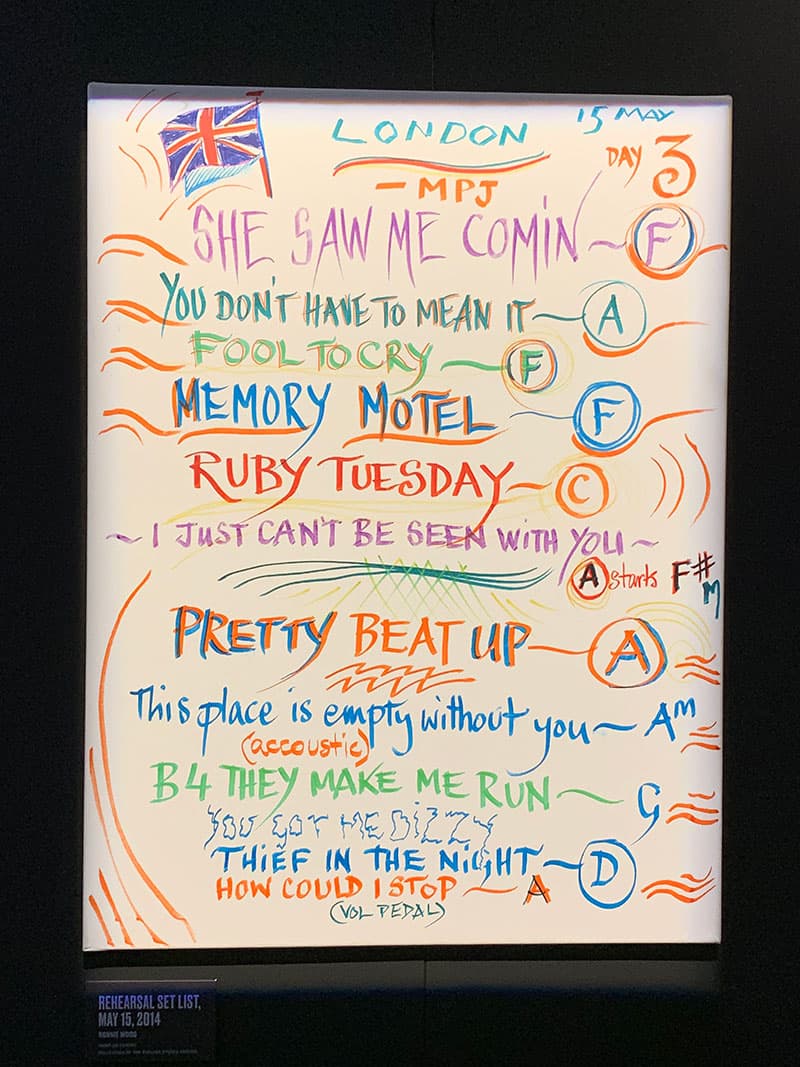 15 MAY
LONDON
DAY 3
- MPJ
SHE SAW ME COMIN ~ F
YOU DON'T HAVE TO MEAN IT ~ A
FOOL TO CRY ~ F
MEMORY MOTEL ~ F
RUBY TUESDAY ~ C
~ I JUST CAN'T BE SEEN WITH YOU ~
A starts F#M
PRETTY BEAT UP - A
This place is empty without you ~ AM
(accoustic)
B4 THEY MAKE ME RUN ~ G
YOU GOT ME DIZZY
THIEF IN THE NIGHT ~ D
HOW COULD I STOP ~ A
(VOL PEDAL)
REHEARSAL SET LIST,
MAY 15, 2014
RONNIE WOOD